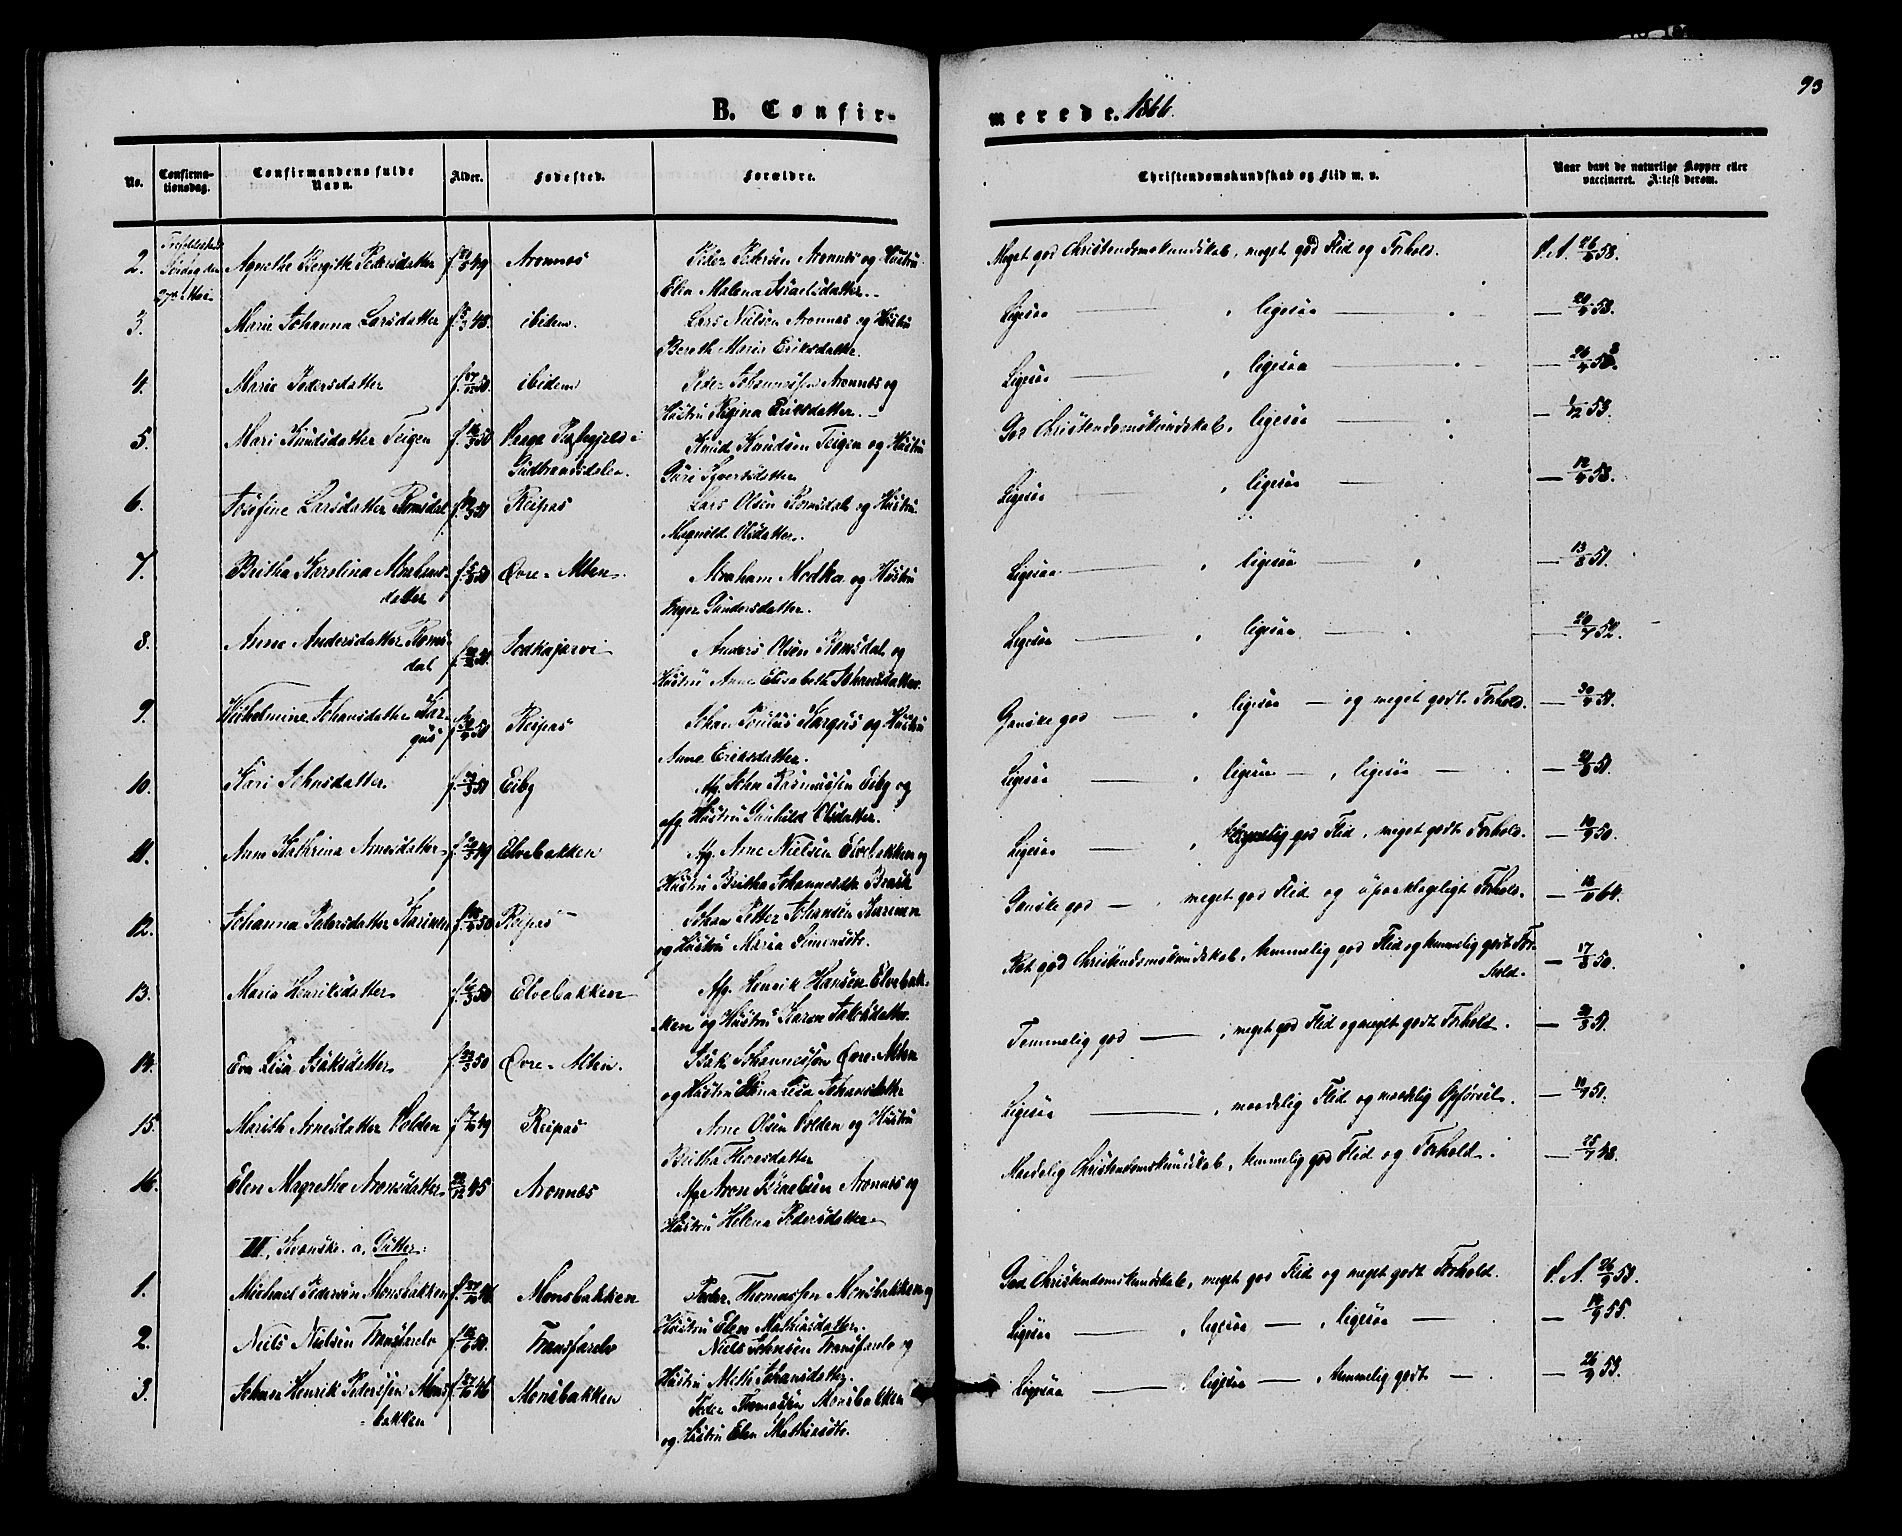 93
B. Confirmerede. 1866.
No. Confirmationsdag. Confirmandens fulde Navn. Alder. Fødested. Forældre. Christendomskundskab og Flid m. v. Naar havt de naturlige Kopper eller vaccineret. Attest derom.
2. Søndag den 27de Mai Agnethe Bergitte Pedersdatter 49 Aronnæs Peder Pedersen Aronnæs og Hustru Elen Malena Israelsdatter. Meget god Christendomskundskab, meget god Flid og Forhold. 58.
3. Marie Johanna Larsdatter 48. ibidem. Lars Nielsen Aronnæs og Hustru Bereth Maria Eriksdatter. Ligesaa — , ligesaa — 58.
4. Marie Pedersdatter 50. ibidem Peder Johannessen Aronnæs og Hustru Regina Eriksdatter. Ligesaa , ligesaa —
5. Mari Knudsdatter Teigen Gudbrandsdalen. Knud Knudsen Teigen og Hustru Guri Syvertsdatter God Christendomskundskab, ligesaa — 53.
6. Josefine Larsdatter Romsdal Reipas Lars Olsen Romsdal og Hustru Magnild Olsdatter. Ligesaa , ligesaa — 58.
7. Britha Karolina Abrahamsdatter Øvre-Alten. Abraham Modka og Hustru Inger Gundersdatter. Ligesaa — , ligesaa — 51.
8. Anne Andersdatter Romsdal Jodkajarvi Anders Olsen Romsdal og Hustru Anne Elisabeth Johansdatter. Ligesaa — , ligesaa — 52.
9. Wilhelmine Johansdatter Kargus Reipas Johan Poulus Kargus og Hustru Anne Eriksdatter. Ganske god — , ligesaa — og meget godt Forhold. — 51.
10. Kari Johnsdatter. Eiby Afg. John Rasmussen Eiby og afg. Hustru Gunhild Olsdatter. Ligesaa — , ligesaa — , ligesaa — 51.
11. Ane Kathrina Arnesdatter 49 Elvebakken Afg. Arne Nielsen Elvebakken og Hustru Britha Johannesdtr. Brask Ligesaa — , god Flid, meget godt Forhold. — 50.
12. Johanna Petersdatter Karinen 50 Reipas Johan Petter Johansen Karinen og Hustru Maria Simonsdtr. Ganske god — , meget god Flid og upaaklageligt Forhold. — 64.
13. Maria Henriksdatter 50 Elvebakken Afg. Henrik Hansen Elvebakken og Hustru Karen Jakobsdatter. god Christendomskundskab, temmelig god Flid og temmelig godt Forhold. — 50.
14. Eva Lisa Isaksdatter 50 Øvre-Alten. Isak Johannessen Øvre-Alten og Hustru Lisa Johansdatter Temmelig god — , meget god Flid og meget godt Forhold. — 51.
15. Marith Arnesdatter Volden 49 Reipas Arne Olsen Volden og Hustru Britha Ligesaa — , maadelig Flid og maadelig Opførsel. — 51.
16. Elen Magrethe Aronsdatter 45 Aronnæs Afg. Aron Israelsen Aronnæs og Hustru Helena Pedersdatter Maadelig Christendomskundskab, temmelig god Flid og Forhold. — 48.
III. Kvenske. a. Gutter:
1. Michael Pedersen Monsbakken 46 Monsbakken Peder Thomassen Monsbakken og Hustru Elen Mathiasdatter. God Christendomskundskab, meget god Flid og meget godt Forhold. 53.
2. Niels Nielsen Transfarelv 50. Transfarelv Niels Johnsen Transfarelv og Hustru Meth Johansdatter Ligesaa — , ligesaa — , ligesaa — 55.
3. Johan Henrik Pedersen Monsbakken 46 Monsbakken Peder Thomassen Monsbakken og Hustru Elen Mathiasdtr. Ligesaa — ligesaa — , temmelig godt — 53.